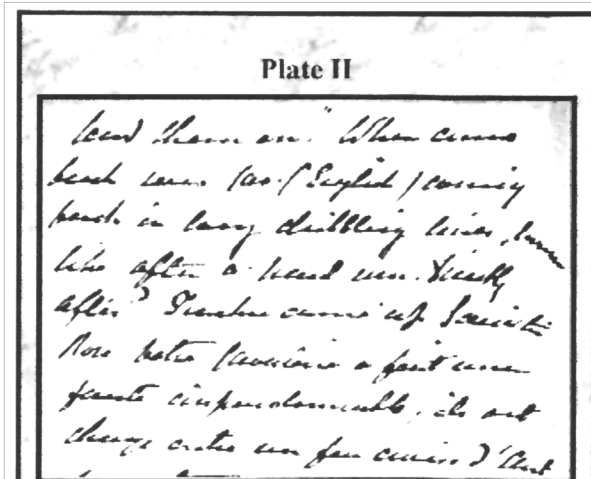 Plate II
lead them on." When came
back were (as (English) coming
back in long dribbling lines,
like after a hard run. Shortly
after Trochu came up I said to
votre cavalerie a fait une
faute impardonnable, ils ont
charge contre un feu croisé d'